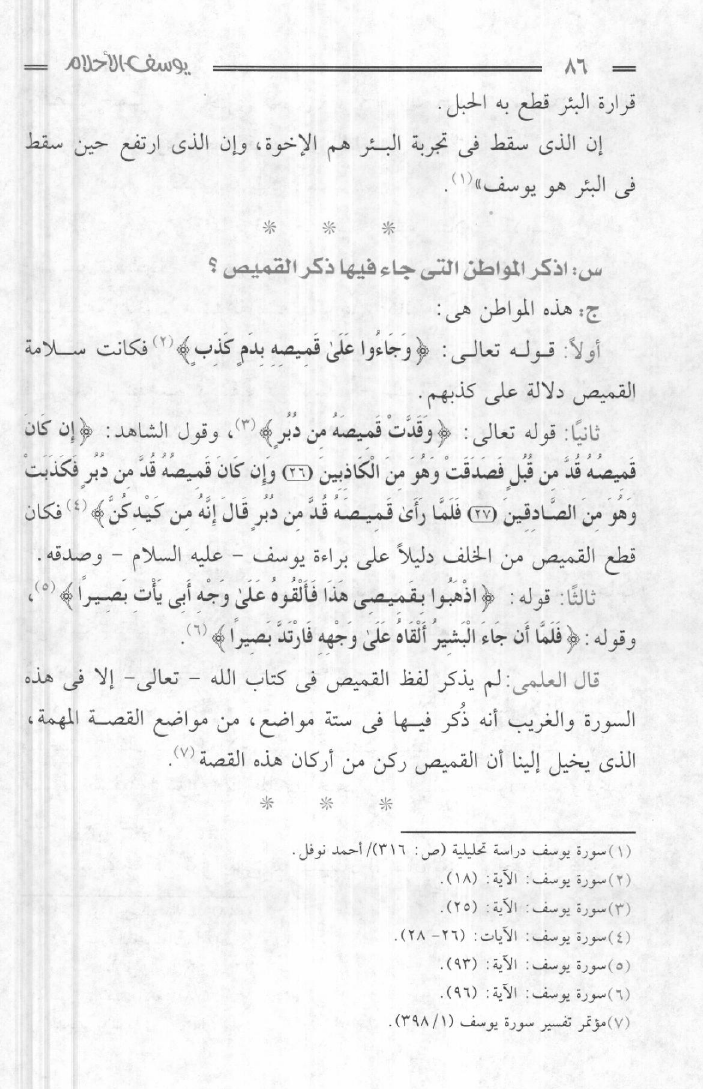 ٨٦ يوسف الأحلام
قرارة البئر قطع به الحبل.
إن الذى سقط فى تجربة البئر هم الإخوة، وإن الذى ارتفع حين سقط
فى البئر هو يوسف»(١).
* * *
س: اذكر المواطن التى جاء فيها ذكر القميص ؟
ج: هذه المواطن هى:
أولاً: قوله تعالى: ﴿وَجَاءُوا عَلَىٰ قَمِيصِهِ بِدَمٍ كَذِبٍ﴾(٢) فكانت سلامة
القميص دلالة على كذبهم.
ثانيًا: قوله تعالى: ﴿وَقَدَّتْ قَمِيصَهُ مِن دُبُرٍ﴾(٣)، وقول الشاهد: ﴿إِن كَانَ
قَمِيصُهُ قُدَّ مِن قُبُلٍ فَصَدَقَتْ وَهُوَ مِنَ الْكَاذِبِينَ (٢٦) وَإِن كَانَ قَمِيصُهُ قُدَّ مِن دُبُرٍ فَكَذَبَتْ
وَهُوَ مِنَ الصَّادِقِينَ (٢٧) فَلَمَّا رَأَىٰ قَمِيصَهُ قُدَّ مِن دُبُرٍ قَالَ إِنَّهُ مِن كَيْدِكُنَّ﴾(٤) فكان
قطع القميص من الخلف دليلاً على براءة يوسف - عليه السلام - وصدقه.
ثالثًا: قوله: ﴿اذْهَبُوا بِقَمِيصِى هَذَا فَأَلْقُوهُ عَلَىٰ وَجْهِ أَبِى يَأْتِ بَصِيرًا﴾(٥)،
وقوله: ﴿فَلَمَّا أَن جَاءَ الْبَشِيرُ أَلْقَاهُ عَلَىٰ وَجْهِهِ فَارْتَدَّ بَصِيرًا﴾(٦).
قال العلمى: لم يذكر لفظ القميص فى كتاب الله - تعالى- إلا فى هذه
السورة والغريب أنه ذُكر فيها فى ستة مواضع، من مواضع القصة المهمة،
الذى يخيل إلينا أن القميص ركن من أركان هذه القصة(٧).
* * *
(١) سورة يوسف دراسة تحليلية (ص: ٣١٦)/ أحمد نوفل.
(٢) سورة يوسف: الآية: (١٨).
(٣) سورة يوسف: الآية: (٢٥).
(٤) سورة يوسف: الآيات: (٢٦- ٢٨).
(٥) سورة يوسف: الآية: (٩٣).
(٦) سورة يوسف: الآية: (٩٦).
(٧) مؤتمر تفسير سورة يوسف (٣٩٨/١).